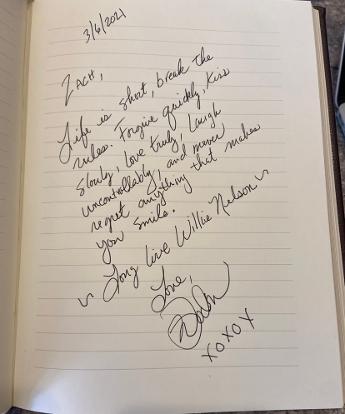 3/6/2021
ZACH,
Life is short, break the
rules. Forgive quickly, Kiss
slowly, love truly, Laugh
uncontrollably, and never
regret anything that makes
you smile.
~ Long Live Willie Nelson ~
Love,
XOXOX